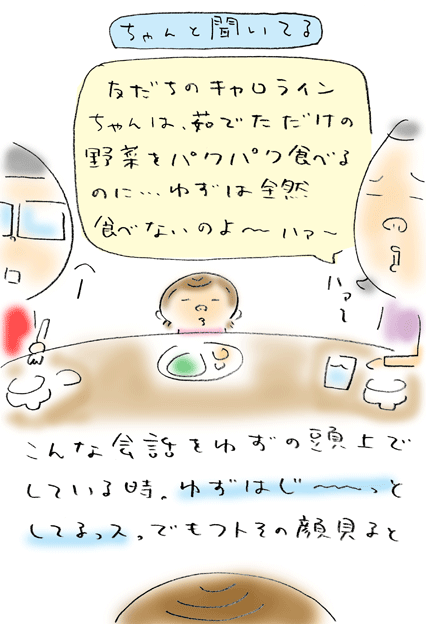 ちゃんと聞いてる
友だちのキャロライン
ちゃんは、茹でただけの
野菜をパクパク食べる
のに…ゆずは全然
食べないのよ〜ハァ〜
へー
ハァ〜
こんな会話をゆずの頭上で
している時。ゆずはじ〜〜っと
してるっス。でもフトその顔見ると